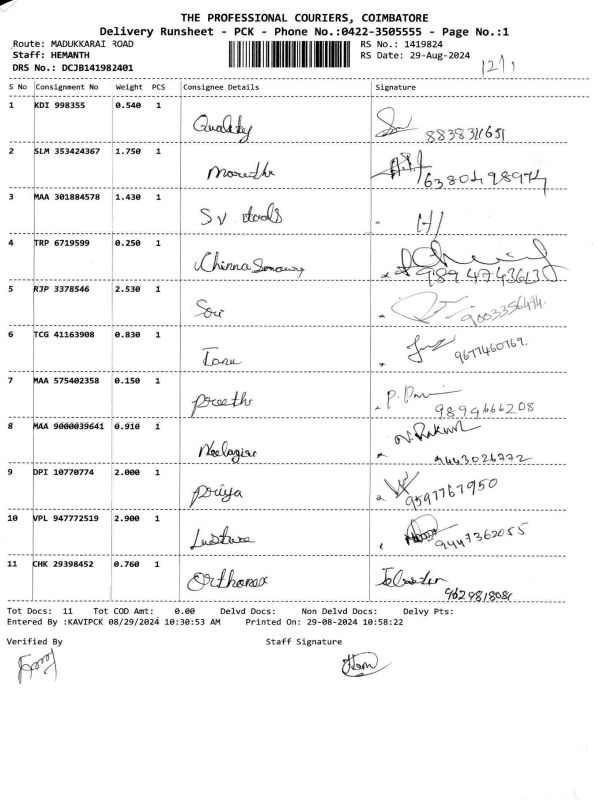 THE PROFESSIONAL COURIERS, COIMBATORE
Delivery Runsheet - PCK - Phone No.:0422-3505555 - Page No.:1
Route: MADUKKARAI ROAD RS No.: 1419824
Staff: HEMANTH RS Date: 29-Aug-2024
DRS No.: DCJB141982401
S No Consignment No Weight PCS Consignee Details Signature
1 KDI 998355 0.540 1
Quality 8838311651
2 SLM 353424367 1.750 1
3 MAA 301884578 1.430 1
SV
4 TRP 6719599 0.250 1
5 RJP 3378546 2.530 1
9003356494
6 TCG 41163908 0.830 1
9677460769
7 MAA 575402358 0.150 1
Preethi
9894666208
8 MAA 9000039641 0.910 1
9443026772
9 DPI 10770774 2.000 1
Priya 9597767950
10 VPL 947772519 2.900 1
9447362055
11 CHK 29398452 0.760 1
Tot Docs: 11 Tot COD Amt: 0.00 Delvd Docs: Non Delvd Docs: Delvy Pts:
Entered By :KAVIPCK 08/29/2024 10:30:53 AM Printed On: 29-08-2024 10:58:22
Verified By Staff Signature